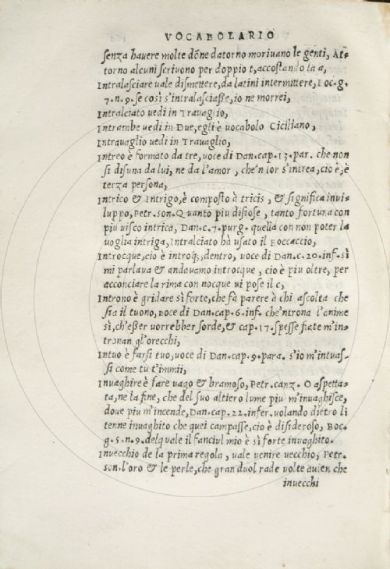 VOCABOLARIO
senza havere molte dõne datorno morivano le genti, At-
torno alcuni scrivono per doppio t, accostando la a,
Intralasciare vale dismettere, da latini intermittere, Boc. g.
7. n. 9. se così s'intralasciasse, io ne morrei,
Intralciato vedi in Travaglio,
Intrambe vedi in Due, egli è vocabolo Ciciliano,
Intravaglio vedi in Travaglio,
Intreo è formato da tre, voce di Dan. cap. 13. par. che non
si disuna da lui, ne da l'amor, che'n lor s'intrea, cio è, è
terza persona,
Intrico & Intrigo, è composto à tricis, & significa invi-
luppo, Petr. son. Quanto piu disiose, tanto fortuna con
piu visco intrica, Dan. c. 7. purg. quella con non poter la
voglia intriga, Intralciato hà usato il Boccaccio,
Introcque, cio è introq;, dentro, voce di Dan. c. 20. inf. sì
mi parlava & andavamo introcque, cio è piu oltre, per
acconciare la rima con nocque vi pose il c,
Introno è gridare sì forte, che fà parere à chi ascolta che
sia il tuono, voce di Dan. cap. 6. inf. che'ntrona l'anime
sì, ch'esser vorrebber sorde, & cap. 17. spesse fiate m'in-
tronan gl'orecchi,
Intuo è farsi tuo, voce di Dan. cap. 9. para. s'io m'intuas-
si come tu t'immii,
Invaghire è fare vago & bramoso, Petr. canz. O aspetta-
ta, ne la fine, che del suo altiero lume piu m'invaghisce,
dove piu m'incende, Dan. cap. 22. infer. volando dietro li
tenne invaghito che quei campasse, cio è disideroso, Boc.
g. 5. n. 9. del quale il fanciul mio è sì forte invaghito.
Invecchio de la prima regola, vale venire vecchio, Petr.
son. l'oro & le perle, che gran duol rade volte avien che
invecchi